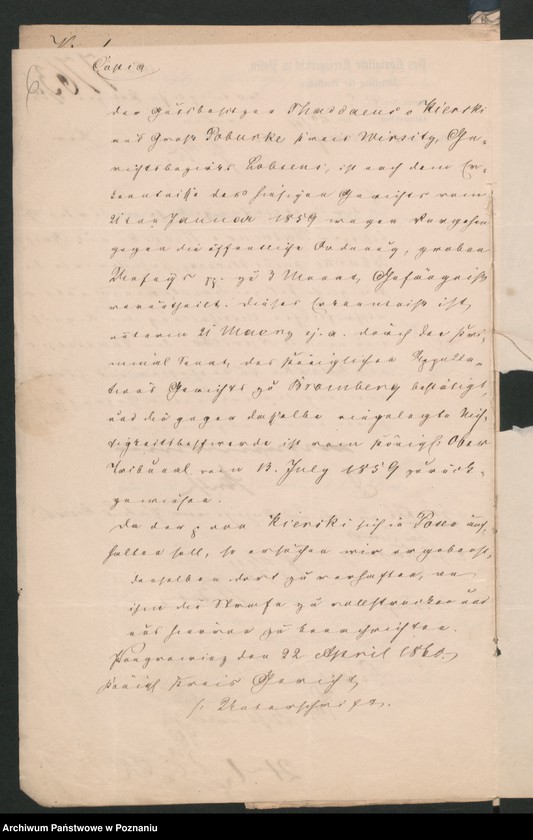 Copia
der Gutsbesitzer Thaddaeus v Kierski
aus Groß Poburke Kreis Wirsitz, Ge-
richtsbezirks Lobsens, ist nach dem Er-
kenntniße des hiesigen Gerichts vom
Januar 1859 wegen Vergehen
gegen die öffentliche Ordnung, groben
Unfugs pp. zu 3 Monat, Gefängniß
verurtheilt. Dieses Erkenntniß ist,
unterm 21 Maerz ej. a. durch den Kri-
minal Senat, des Königlichen Appella-
tions Gerichts zu Bromberg bestätigt,
und die gegen dasselbe eingelegte Nich-
tigkeitsbeschwerde ist vom Königl. Ober
Tribunal vom 13. July 1859 zurück-
gewiesen.
Da der p von Kierski sich in Posen auf-
halten soll, so ersuchen wir ergebenst,
denselben dort zu verhaften, an
ihm die Strafe zu vollstrecken und
uns hiervon zu benachrichten.
Wongrowiec den 22 April 1860.
Königl Kreis Gericht,
Unterschrift.
Archiwum Państwowe w Poznaniu